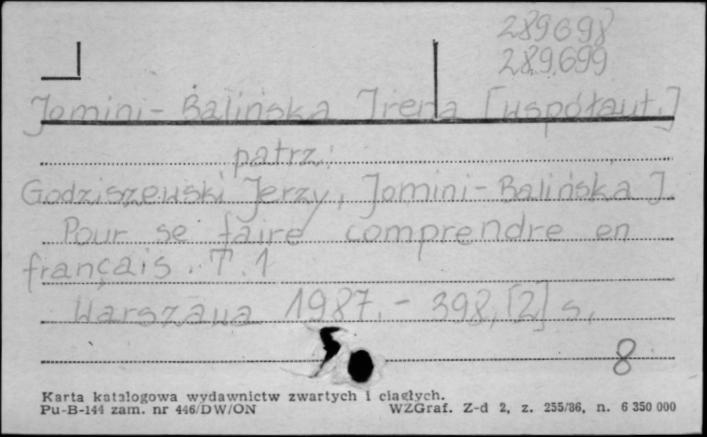 289698
289699
Jomini-Balińska Irena [współaut.]
patrz:
Godziszewski Jerzy, Jomini-Balińska J.
Pour se faire comprendre en
français. T. 1
Warszawa 1987. - 398, [2] s.
8
Karta katalogowa wydawnictw zwartych i ciągłych.
Pu-B-144 zam. nr 446/DW/ON WZGraf. Z-d 2, z. 255/86, n. 6 350 000